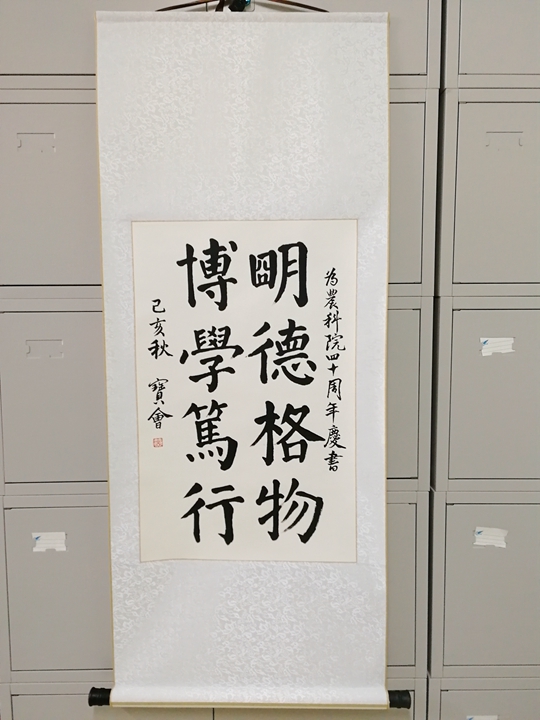 为農科院四十周年慶書
明德格物
博學篤行
己亥秋 寶會